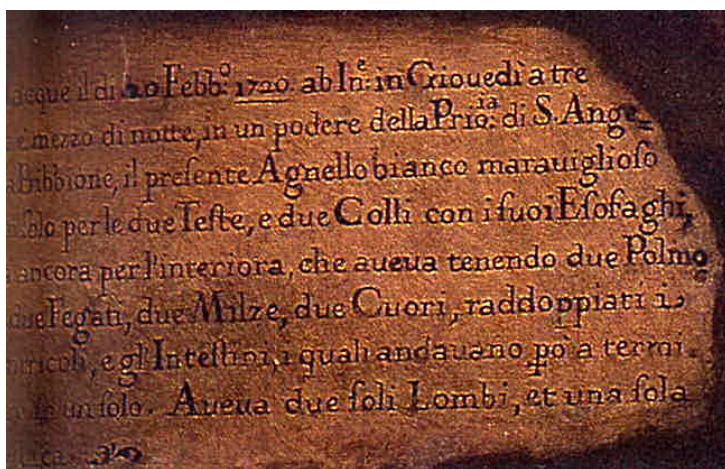 acque il dì 20 Febb.º 1720. ab In.e: in Giouedì a tre
e mezzo di notte, in un podere della Prio.ia: di S. Ange=
a Bibbione, il preſente Agnello bianco marauiglioſo
ſolo per le due Teſte, e due Colli con i ſuoi Eſofaghi,
ancora per l'interiora, che aueua tenendo due Polmo
due Fegati, due Milze, due Cuori, raddoppiati i
tricoli, e gl'Inteſtini, i quali andauano pò a termi.
in un ſolo. Aueua due ſoli Lombi, et una ſola